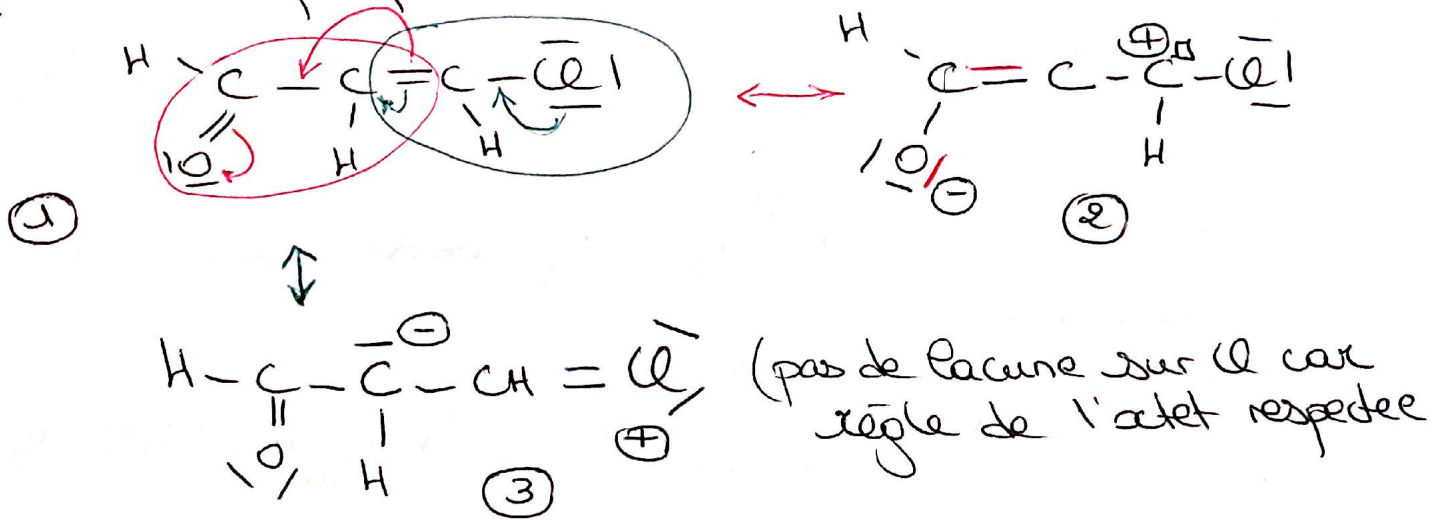 H C — C = C — Cl ⟷ H C = C — C — Cl
⊕
O H H
O ⊖ H
① ②
↕
H — C — C — CH = Cl (pas de lacune sur Cl car
⊖ ⊕
O H règle de l'octet respectee
③